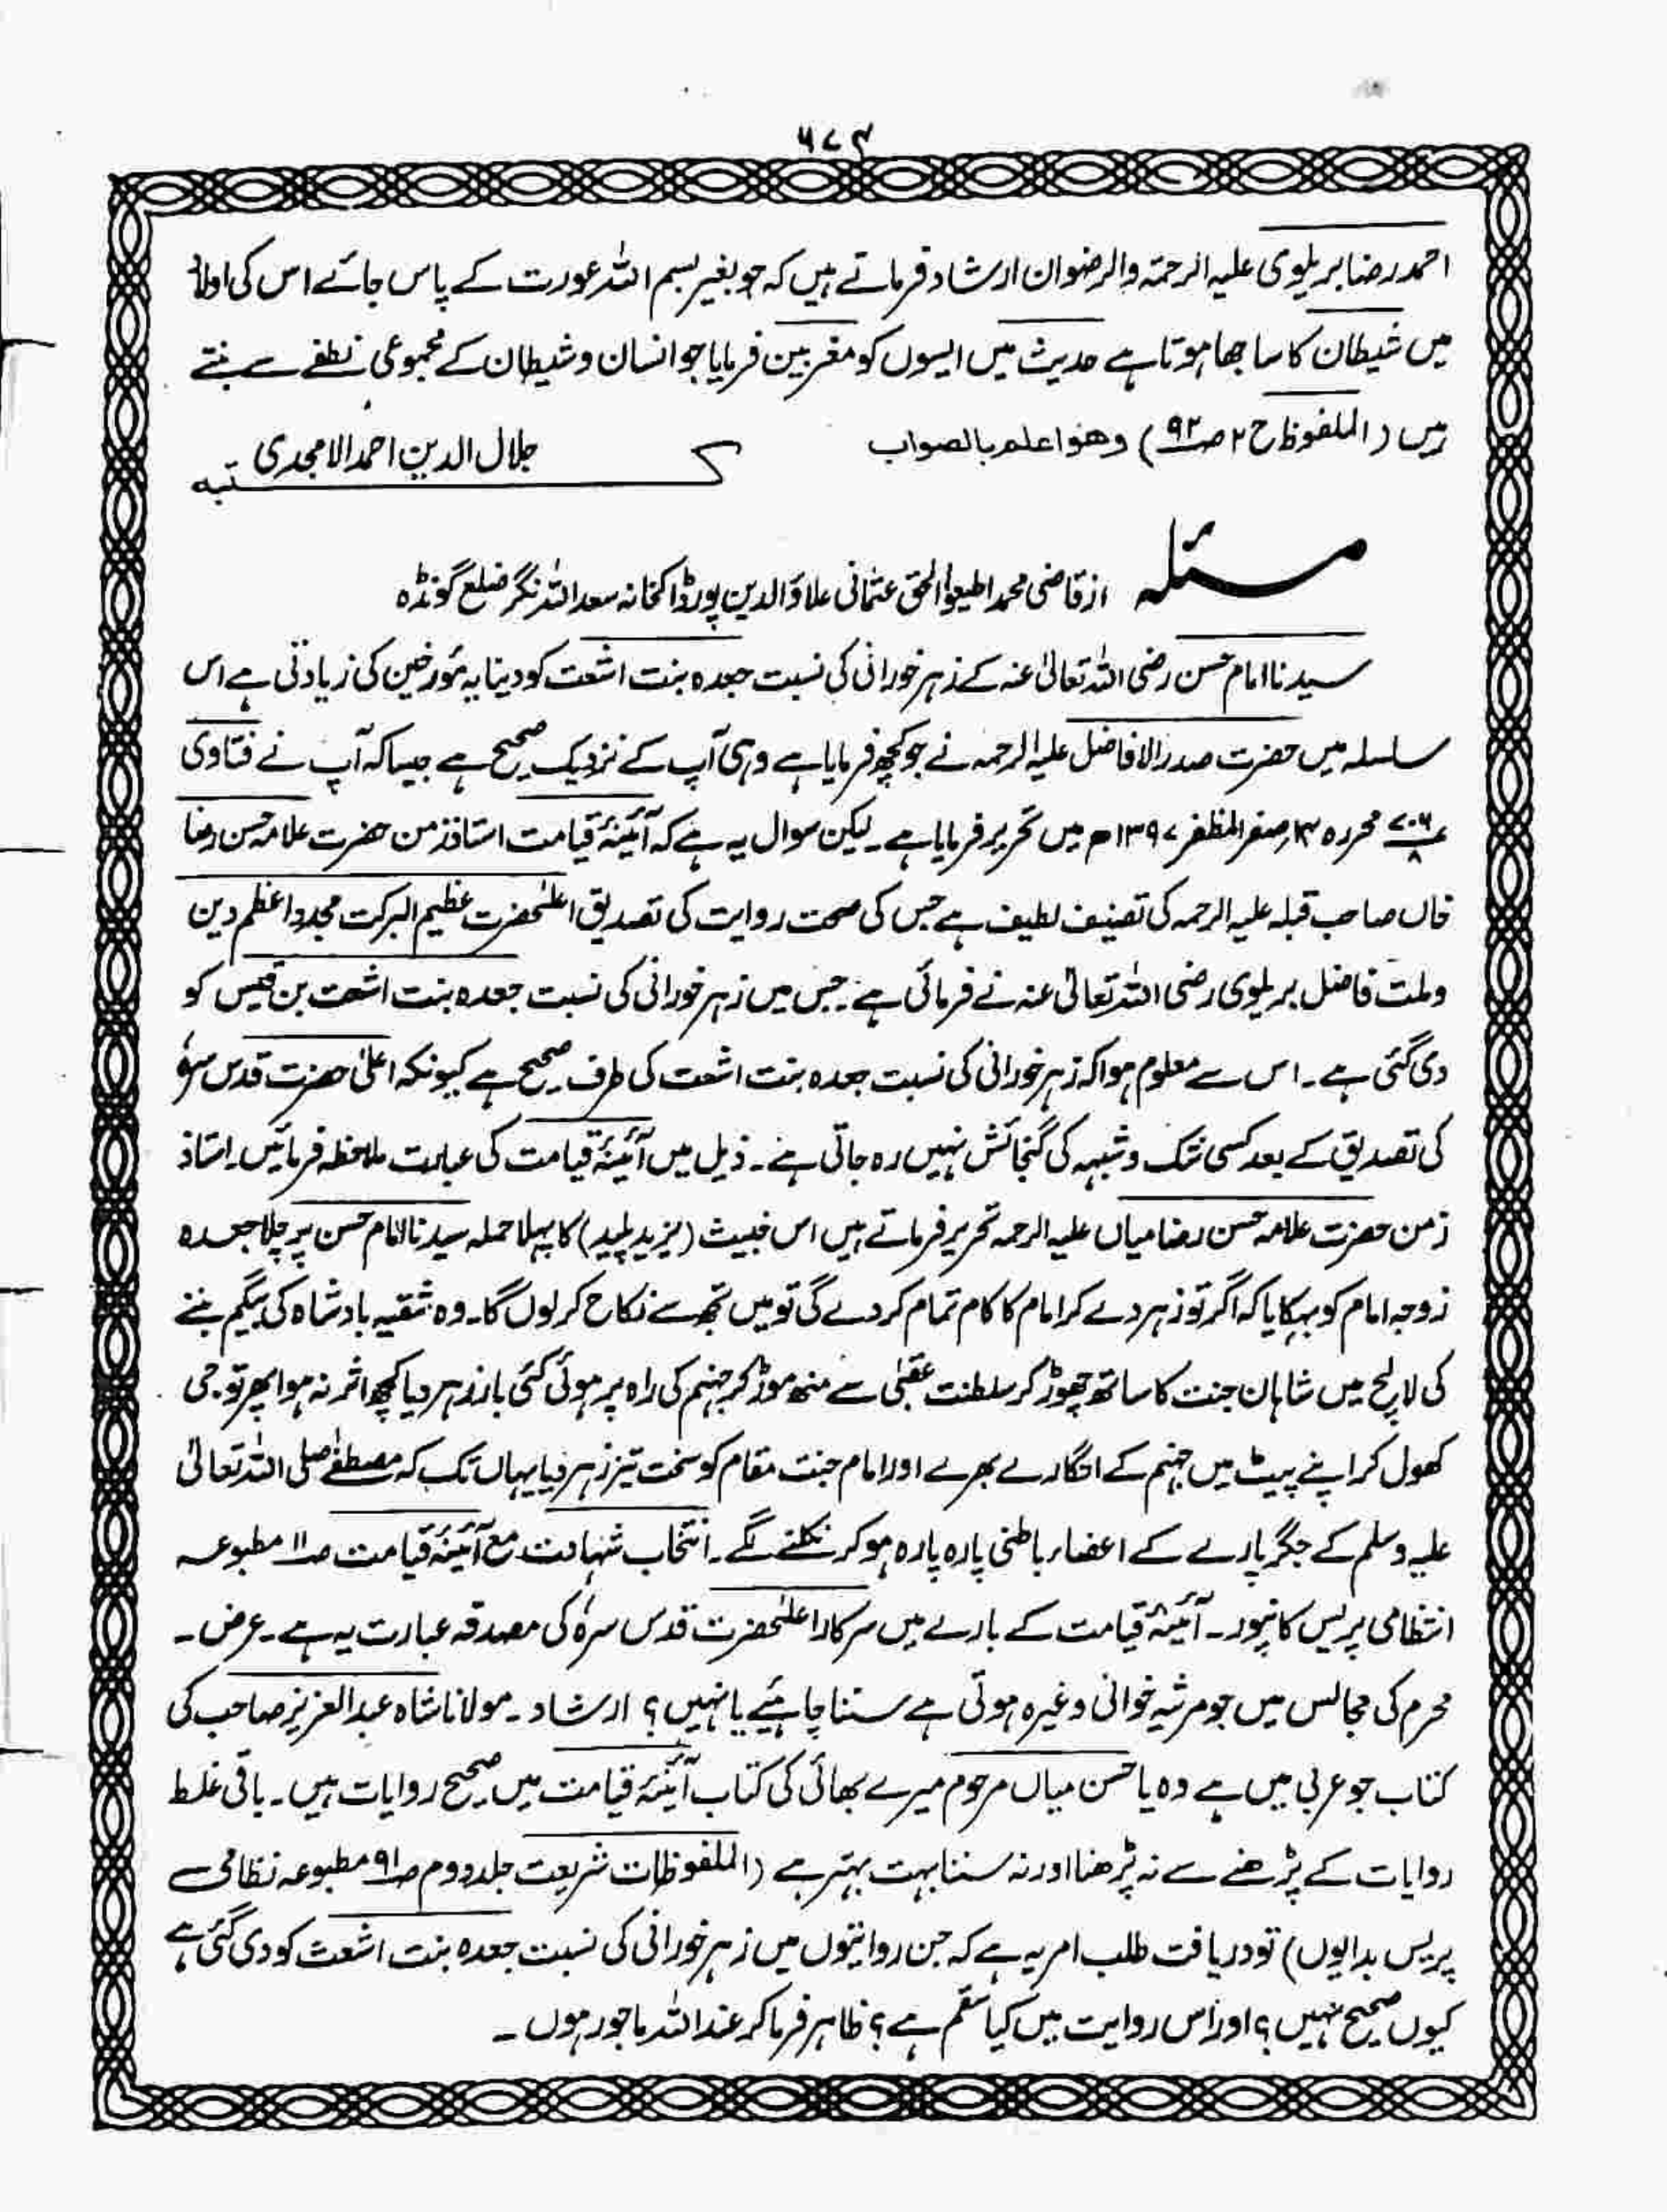 ۶۷۴
احمد رضا بریلوی علیہ الرحمۃ والرضوان ارشاد فرماتے ہیں کہ جو بغیر بسم اللہ عورت کے پاس جائے اس کی اولاد
میں شیطان کا ساجھا ہوتا ہے حدیث میں ایسوں کو مغربین فرمایا جو انسان و شیطان کے مجموعی نطفے سے بنتے
ہیں (الملفوظ ح ۲ ص ۹۲) وھو اعلم بالصواب
جلال الدین احمد الامجدی
کتبہ
مسئلہ
از قاضی محمد اطیعوالحق عثمانی علاؤالدین پور ڈاکخانہ سعداللہ نگر ضلع گونڈہ
سیدنا امام حسن رضی اللہ تعالیٰ عنہ کے زہر خورانی کی نسبت جعدہ بنت اشعث کو دینا یہ مؤرخین کی زیادتی ہے اس
سلسلہ میں حضرت صدرالافاضل علیہ الرحمہ نے جو کچھ فرمایا ہے وہی آپ کے نزدیک صحیح ہے جیسا کہ آپ نے فتاوی
محررہ صفر المظفر ۱۳۹۷ھ میں تحریر فرمایا ہے۔ لیکن سوال یہ ہے کہ آئینۂ قیامت استاذ زمن حضرت علامہ حسن رضا
خاں صاحب قبلہ علیہ الرحمہ کی تصنیف لطیف ہے جس کی صحت روایت کی تصدیق اعلٰحضرت عظیم البرکت مجدد اعظم دین
و ملت فاضل بریلوی رضی اللہ تعالیٰ عنہ نے فرمائی ہے۔ جس میں زہر خورانی کی نسبت جعدہ بنت اشعث بن قیس کو
دی گئی ہے۔ اس سے معلوم ہوا کہ زہر خورانی کی نسبت جعدہ بنت اشعث کی طرف صحیح ہے کیونکہ اعلیٰ حضرت قدس سرہٗ
کی تصدیق کے بعد کسی شک و شبہہ کی گنجائش نہیں رہ جاتی ہے۔ ذیل میں آئینۂ قیامت کی عبارت ملاحظہ فرمائیں۔ استاذ
زمن حضرت علامہ حسن رضا میاں علیہ الرحمہ تحریر فرماتے ہیں اس خبیث (یزید پلید) کا پہلا حملہ سیدنا الامام حسن پر چلا جعدہ
زوجہ امام کو بہکایا کہ اگر تو زہر دے کر امام کا کام تمام کر دے گی تو میں تجھ سے نکاح کر لوں گا۔ وہ شقیہ بادشاہ کی بیگم بننے
کی لالچ میں شاہان جنت کا ساتھ چھوڑ کر سلطنت عقبٰی سے منھ موڑ کر جہنم کی راہ پر ہوئی کئی بار زہر دیا کچھ اثر نہ ہوا پھر تو جی
کھول کر اپنے پیٹ میں جہنم کے انگارے بھرے اور امام جنت مقام کو سخت تیز زہر دیا یہاں تک کہ مصطفٰے صلی اللہ تعالیٰ
علیہ وسلم کے جگر پارے کے اعضاء باطنی پارہ پارہ ہو کر نکلنے لگے۔ انتخاب شہادت مع آئینۂ قیامت ص ۱۱ مطبوعہ
انتظامی پریس کانپور۔ آئینۂ قیامت کے بارے میں سرکار اعلٰحضرت قدس سرہٗ کی مصدقہ عبارت یہ ہے۔ عرض۔
محرم کی مجالس میں جو مرثیہ خوانی وغیرہ ہوتی ہے سننا چاہئیے یا نہیں؟ ارشاد۔ مولانا شاہ عبدالعزیز صاحب کی
کتاب جو عربی میں ہے وہ یا حسن میاں مرحوم میرے بھائی کی کتاب آئینۂ قیامت میں صحیح روایات ہیں۔ باقی غلط
روایات کے پڑھنے سے نہ پڑھنا اور نہ سننا بہت بہتر ہے (الملفوظات شریعت جلد دوم ص ۹۱ مطبوعہ نظامی
پریس بدایوں) تو دریافت طلب امر یہ ہے کہ جن روایتوں میں زہر خورانی کی نسبت جعدہ بنت اشعث کو دی گئی ہے
کیوں صحیح نہیں؟ اور اس روایت میں کیا سقم ہے؟ ظاہر فرما کر عنداللہ ماجور ہوں۔